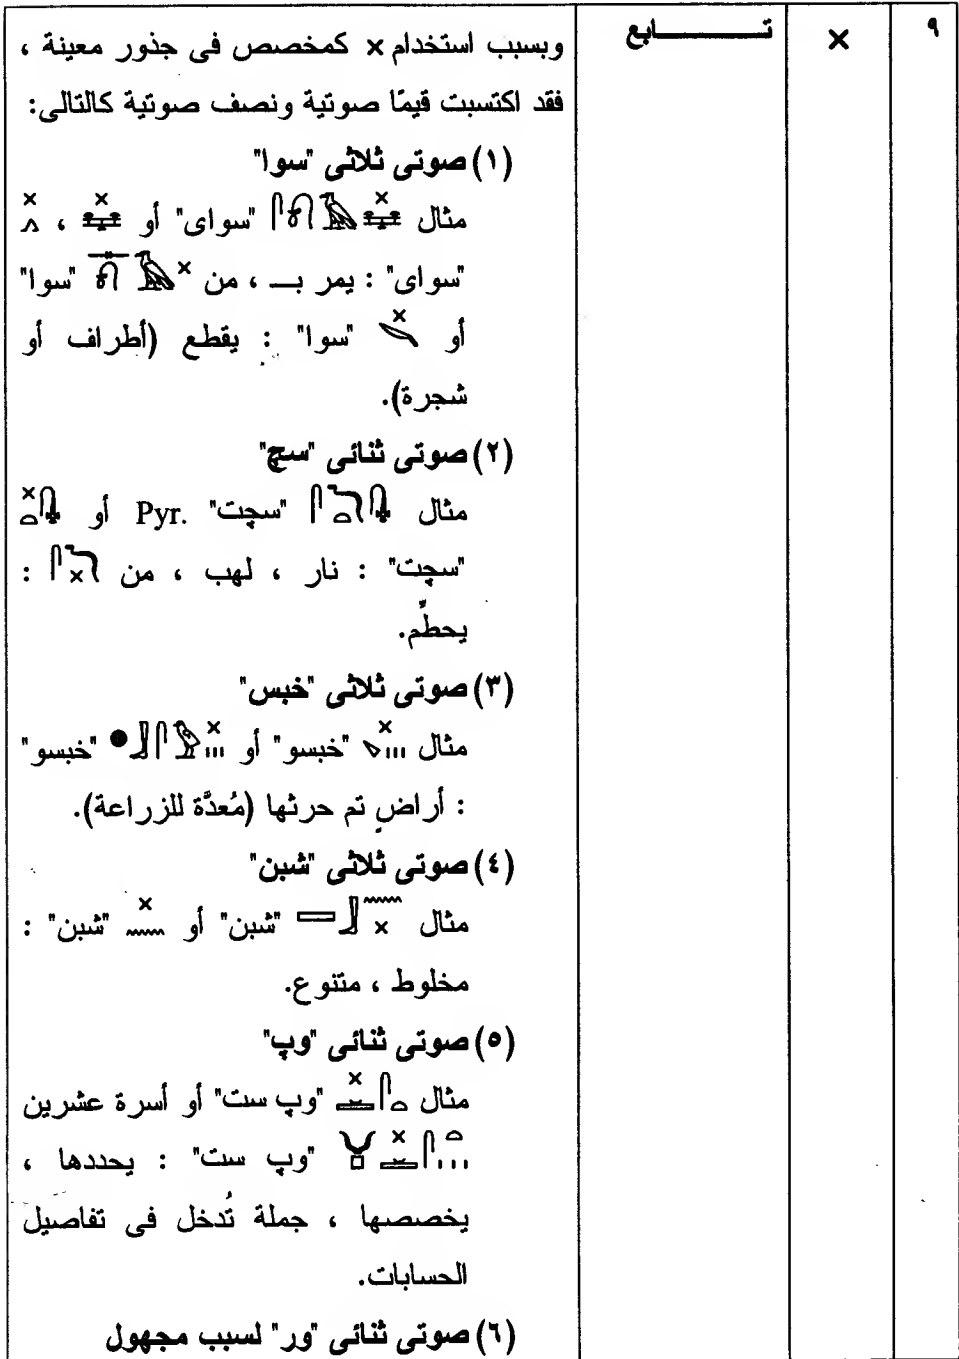 ٩ × تـــــــابع وبسبب استخدام × كمخصص فى جذور معينة ،
فقد اكتسبت قيمًا صوتية ونصف صوتية كالتالى:
(١) صوتى ثلاثى "سوا"
مثال "سواى" أو ،
"سواى" : يمر بــ ، من "سوا"
أو "سوا" : يقطع (أطراف أو
شجرة).
(٢) صوتى ثنائى "سچ"
مثال "سچت" Pyr. أو
"سچت" : نار ، لهب ، من :
يحطِّم.
(٣) صوتى ثلاثى "خبس"
مثال "خبسو" أو "خبسو"
: أراضٍ تم حرثها (مُعدَّة للزراعة).
(٤) صوتى ثلاثى "شبن"
مثال "شبن" أو "شبن" :
مخلوط ، متنوع.
(٥) صوتى ثنائى "وپ"
مثال "وپ ست" أو أسرة عشرين
"وپ ست" : يحددها ،
يخصصها ، جملة تُدخل فى تفاصيل
الحسابات.
(٦) صوتى ثنائى "ور" لسبب مجهول